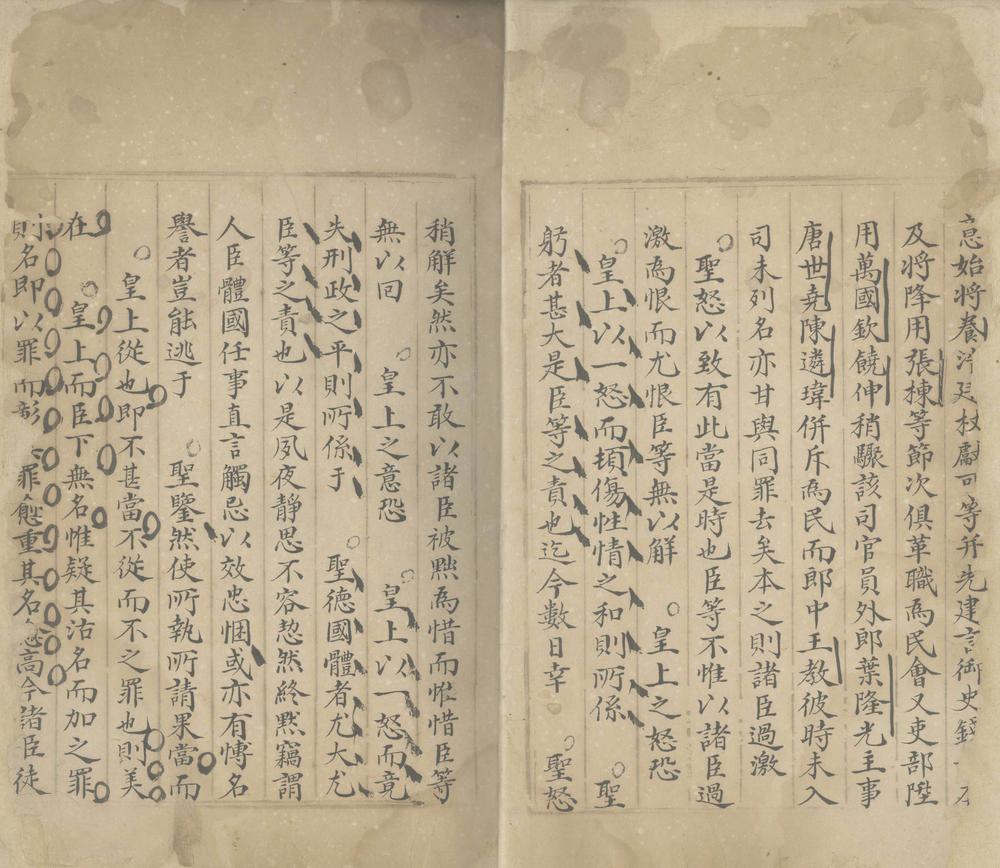 意始將養淳廷杖獻可等并先建言御史錢一本
及將降用張棟等節次俱革職為民會又吏部陞
用萬國欽饒伸稍驟該司官員外郎葉隆光主事
唐世堯陳遴瑋併斥為民而郎中王教彼時未入
司未列名亦甘與同罪去矣本之則諸臣過激
聖怒以致有此當是時也臣等不惟以諸臣過
激為恨而尤恨臣等無以解 皇上之怒恐
皇上以一怒而頓傷性情之和則所係 聖
躬者甚大是臣等之責也迄今數日幸 聖怒
稍解矣然亦不敢以諸臣被黜為惜而惟惜臣等
無以回 皇上之意恐 皇上以一怒而竟
失刑政之平則所係于 聖德國體者尤大尤
臣等之責也以是夙夜靜思不容恝然終默竊謂
人臣體國任事直言觸忌以效忠悃或亦有慱名
譽者豈能逃于 聖鑒然使所執所請果當而
皇上從也即不甚當不從而不之罪也則美
在 皇上而臣下無名惟疑其沽名而加之罪
則名即以罪而彰 罪愈重其名愈高今諸臣徒